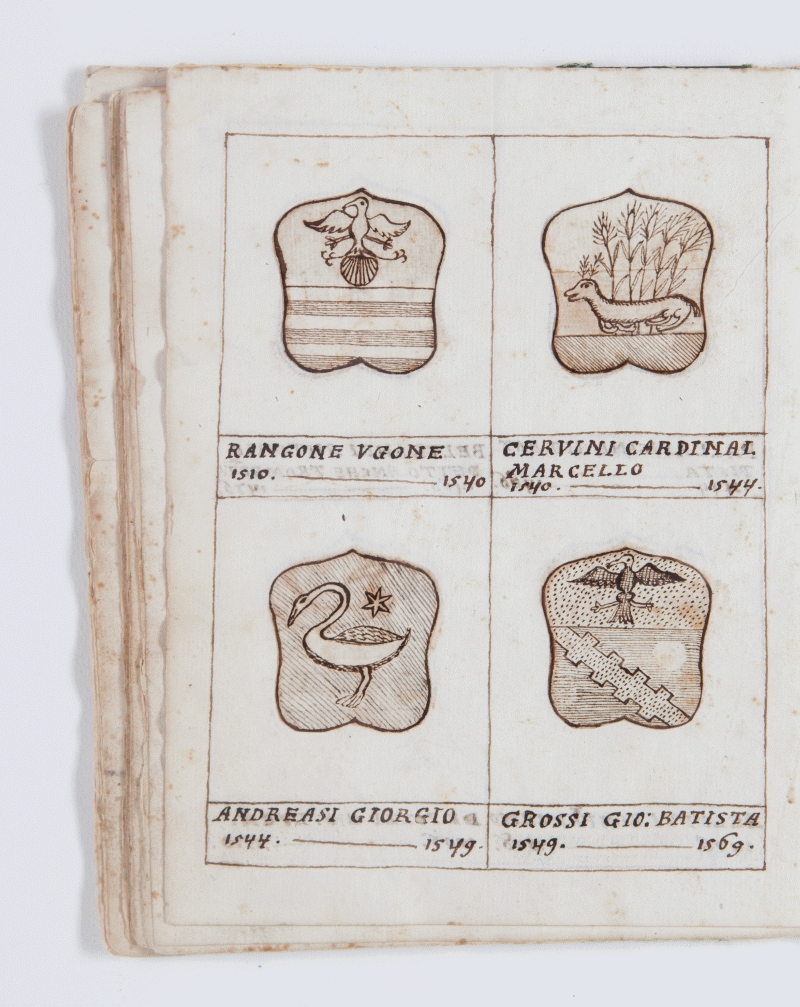 RANGONE VGONE
1510. 1540
CERVINI CARDINAL
MARCELLO
1540. 1544.
ANDREASI GIORGIO
1544. 1549.
GROSSI GIO: BATISTA
1549. 1569.